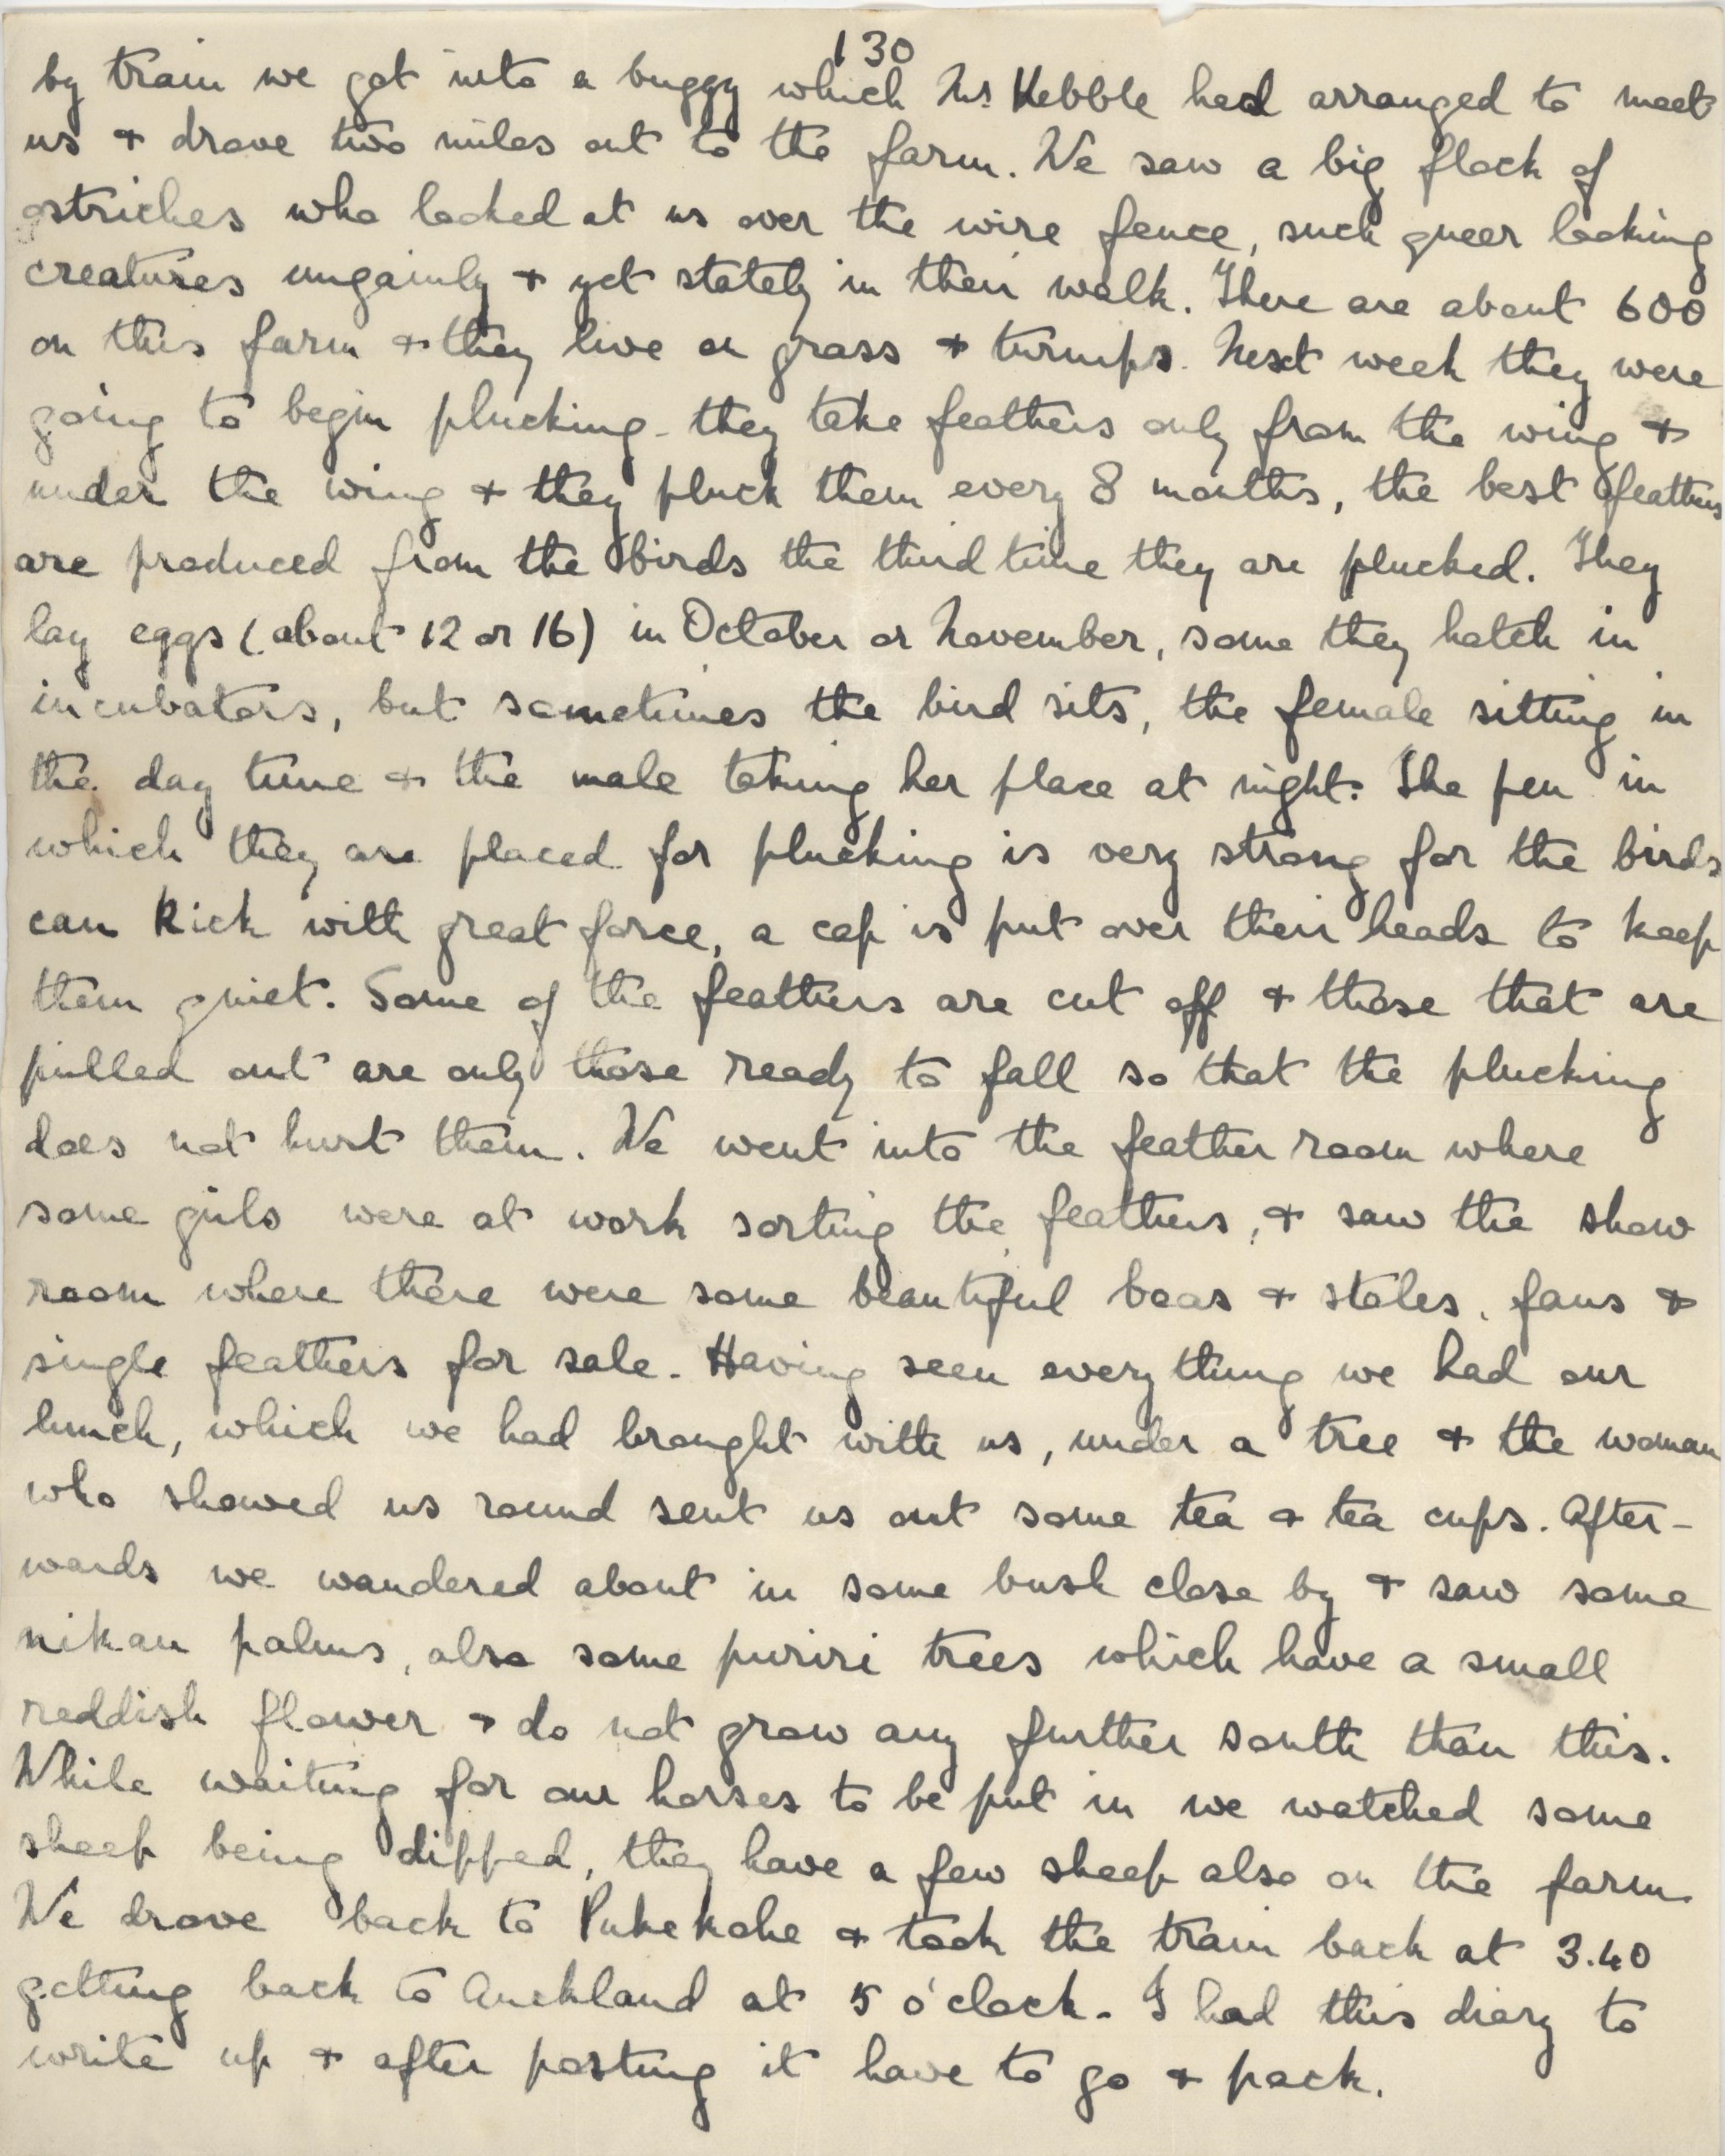 130
by train we got into a buggy which Mr. Kebble had arranged to meet
us + drove two miles out to the farm. We saw a big flock of
ostriches who looked at us over the wire fence, such queer looking
creatures ungainly + yet stately in their walk. There are about 600
on this farm + they live on grass + turnips. Next week they were
going to begin plucking - they take feathers only from the wing +
under the wing + they pluck them every 8 months, the best feathers
are produced from the birds the third time they are plucked. They
lay eggs (about 12 or 16) in October or November, some they hatch in
incubators, but sometimes the bird sits, the female sitting in
the day time + the male taking her place at night. The pen in
which they are placed for plucking is very strong for the birds
can kick with great force, a cap is put over their heads to keep
them quiet. Some of the feathers are cut off + those that are
pulled out are only those ready to fall so that the plucking
does not hurt them. We went into the feather room where
some girls were at work sorting the feathers, + saw the show
room where there were some beautiful boas + stoles, fans +
single feathers for sale. Having seen everything we had our
lunch, which we had brought with us, under a tree + the woman
who showed us round sent us out some tea + tea cups. After-
wards we wandered about in some bush close by + saw some
nikau palms, also some puriri trees which have a small
reddish flower + do not grow any further south than this.
While waiting for our horses to be put in we watched some
sheep being dipped, they have a few sheep also on the farm.
We drove back to Pukekohe + took the train back at 3.40
getting back to Auckland at 5 o'clock. I had this diary to
write up + after posting it have to go + pack.